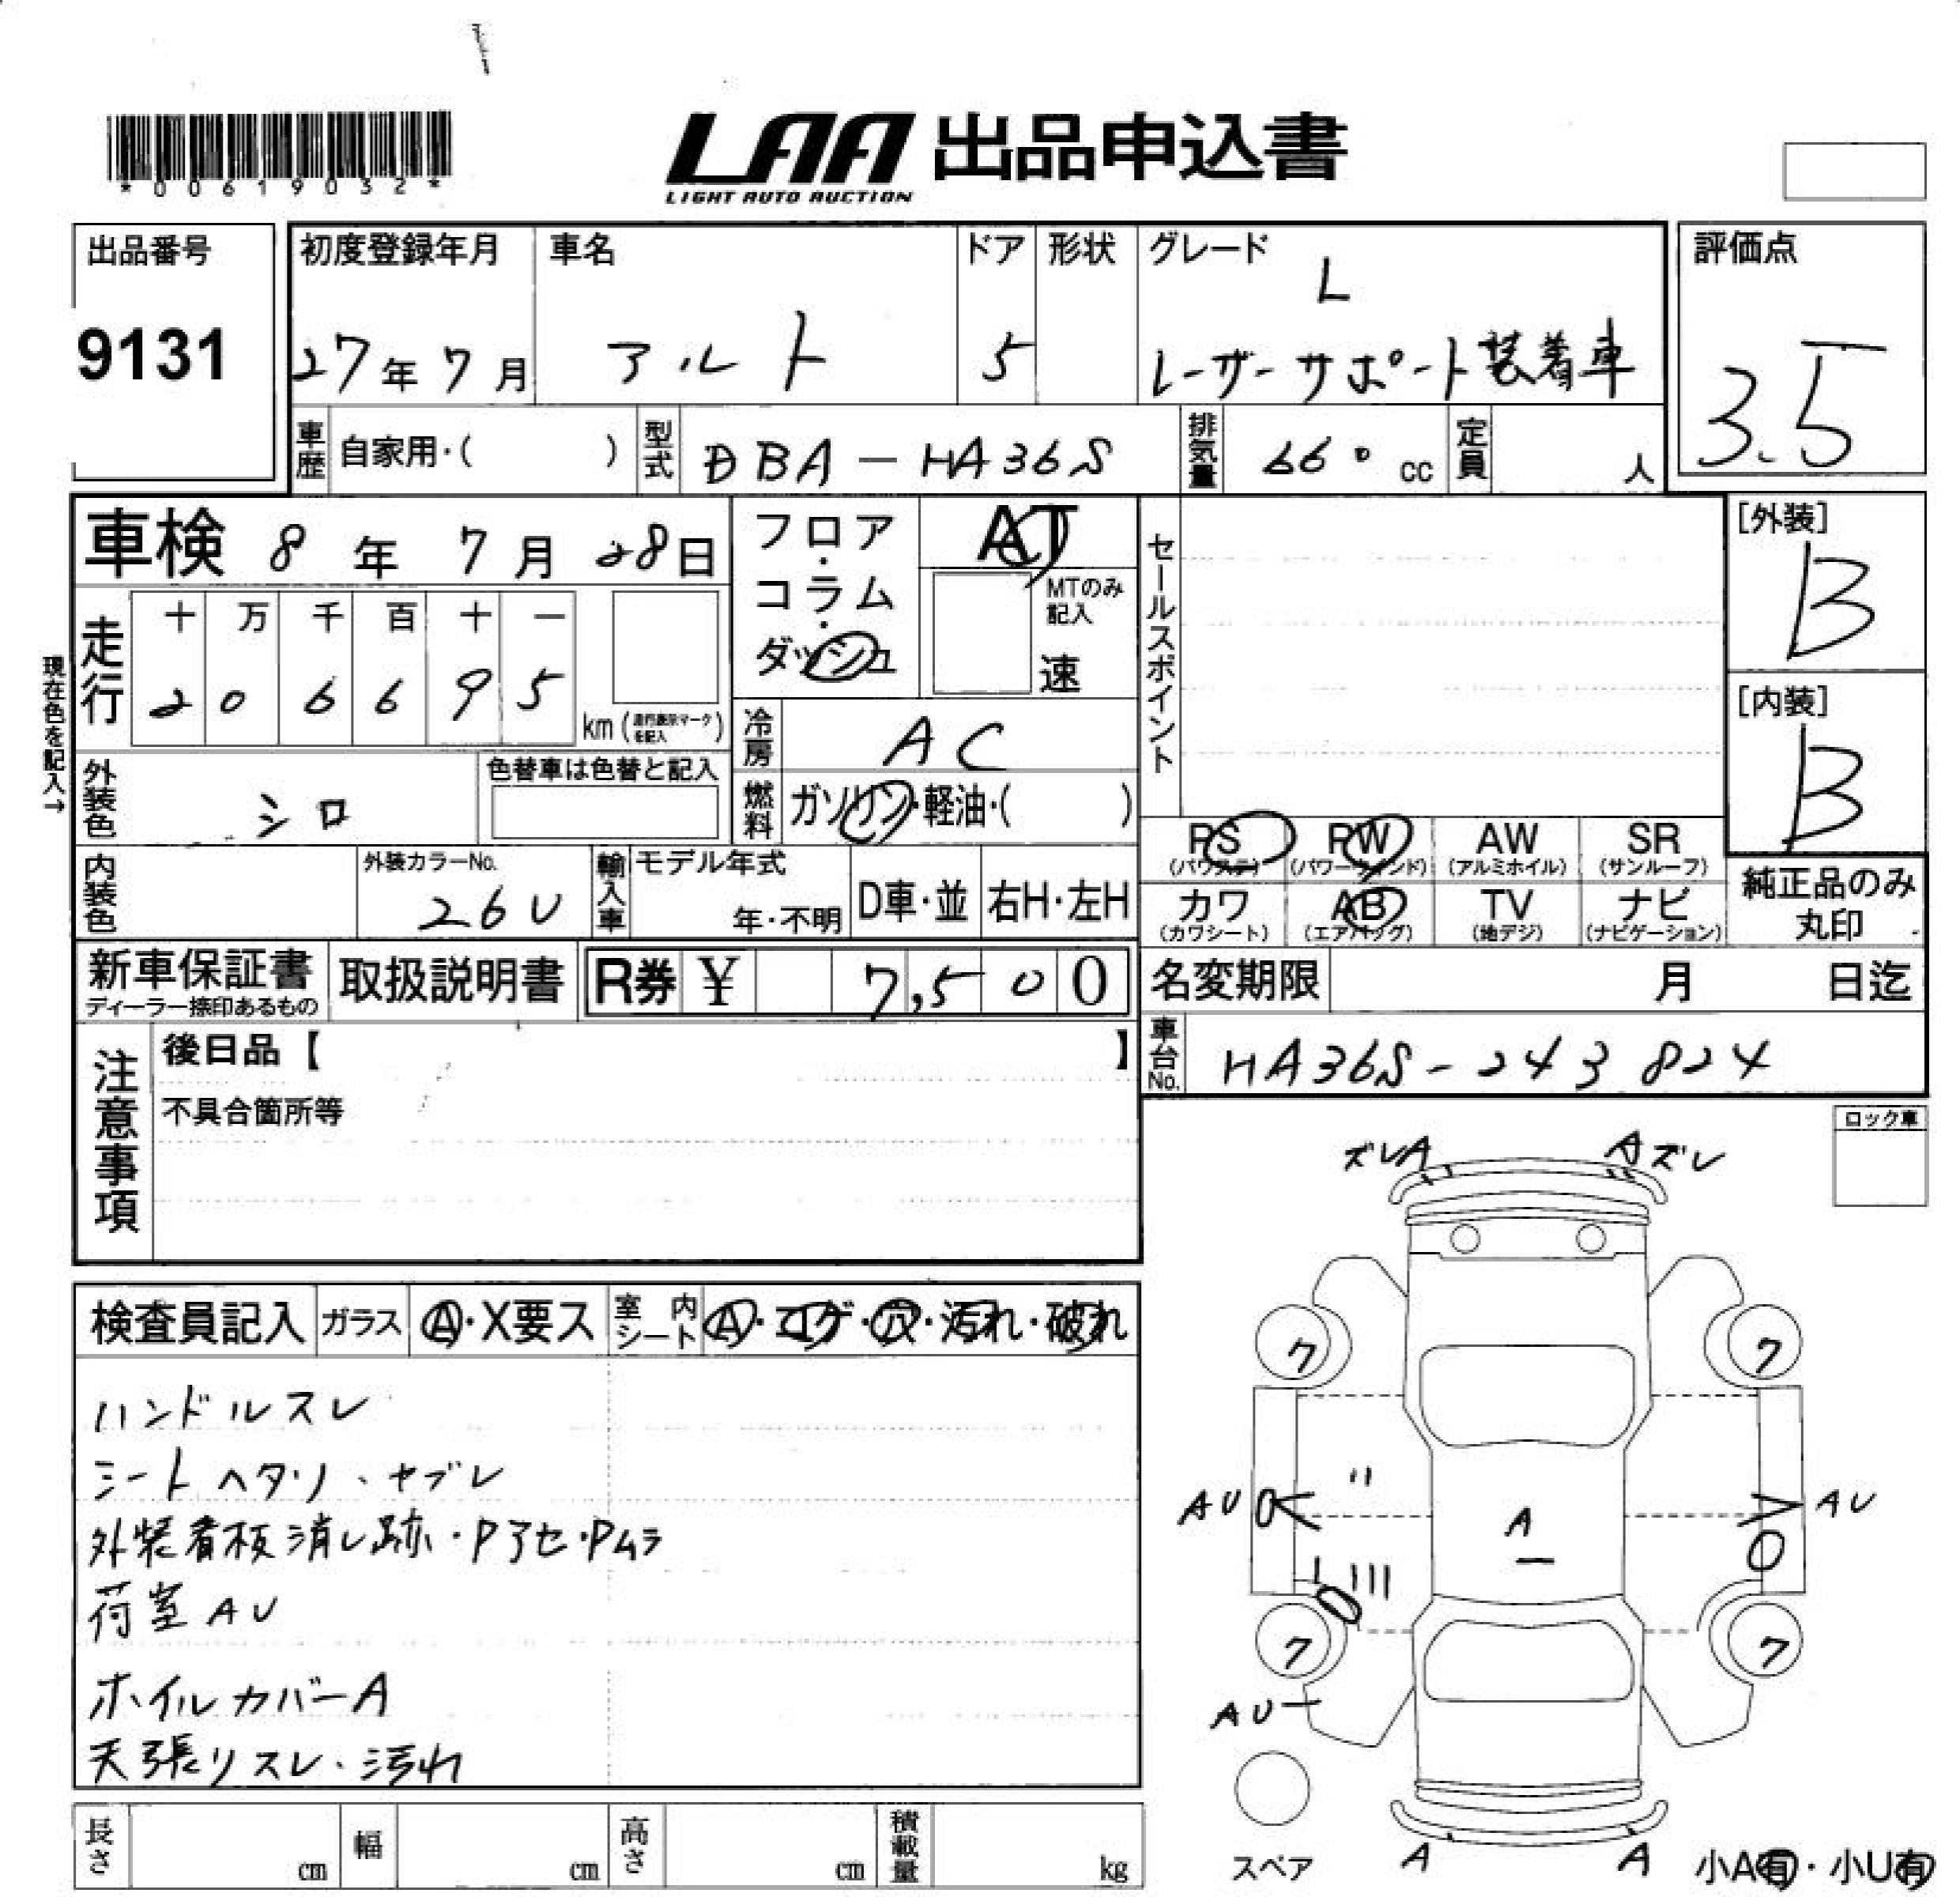 *00619032*
LAA 出品申込書
LIGHT AUTO AUCTION
出品番号
9131
初度登録年月
27年7月
車名
アルト
ドア
5
形状
グレード
L
レーザーサポート装着車
評価点
3.5
車歴 自家用・( )
型式 DBA-HA36S
排気量 660 cc
定員 人
車検 8年7月28日
フロア・コラム・ダッシュ
AT
MTのみ記入
速
セールスポイント
[外装]
B
[内装]
B
現在色を記入→
走行
十 万 千 百 十 一
2 0 6 6 9 5
km (走行表示マークを記入)
冷房 AC
燃料 ガソリン・軽油・( )
外装色 シロ
色替車は色替と記入
内装色
外装カラーNo.
26U
輸入車
モデル年式
年・不明
D車・並
右H・左H
PS (パワステ)
PW (パワーウインド)
AW (アルミホイル)
SR (サンルーフ)
カワ (カワシート)
AB (エアバッグ)
TV (地デジ)
ナビ (ナビゲーション)
純正品のみ丸印
新車保証書
ディーラー捺印あるもの
取扱説明書
R券 ¥ 7,500
名変期限 月 日迄
車台No. HA36S-243824
注意事項
後日品【 】
不具合箇所等
ロック車
検査員記入
ガラス Ⓐ・X要ス
室内シート Ⓐ・コゲ・穴・汚れ・破れ
ハンドルスレ
シートヘタリ、ヤブレ
外装看板消し跡・Pアセ・Pムラ
荷室AU
ホイルカバーA
天張リスレ・汚れ
ズレA
Aズレ
ク
ク
AU
A
AU
ク
ク
AU
スペア
A
A
小A有・小U有
長さ cm
幅 cm
高さ cm
積載量 kg